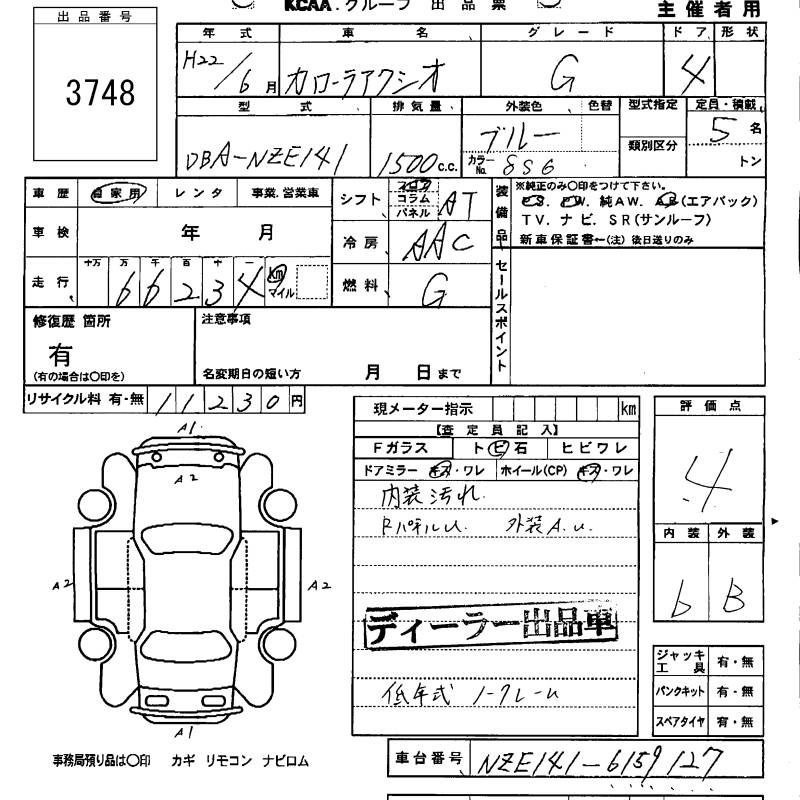 KCAA. グループ 出品票
主催者用
出品番号
3748
年式 車名 グレード ドア 形状
H22/6月 カローラアクシオ G 4
型式 排気量 外装色 色替 型式指定 定員・積載
類別区分
DBA-NZE141 1500c.c. ブルー 5名
カラーNo. 8S6 トン
車歴 自家用 レンタ 事業.営業車
シフト フロア コラム パネル AT
装備品
※純正のみ〇印をつけて下さい。
P.S. P.W. 純AW. A.B(エアバック)
TV. ナビ. SR(サンルーフ)
新車保証書←(注)後日送りのみ
車検 年 月
冷房 AAC
走行 十万 万 千 百 十 一
66234 km マイル
燃料 G
セールスポイント
修復歴 箇所
有
(有の場合は〇印を)
注意事項
名変期日の短い方 月 日まで
リサイクル料 有・無 11230円
現メーター指示 km
【査定員記入】
Fガラス トビ石 ヒビワレ
ドアミラー キズ・ワレ ホイール(CP) キズ・ワレ
内装汚れ.
RパネルU. 外装A.u.
ディーラー出品車
低年式 ノークレーム
評価点
4
内装 外装
b B
ジャッキ工具 有・無
パンクキット 有・無
スペアタイヤ 有・無
A1
A2
A2
A2
A1
事務局預り品は〇印 カギ リモコン ナビロム
車台番号 NZE141-6159127